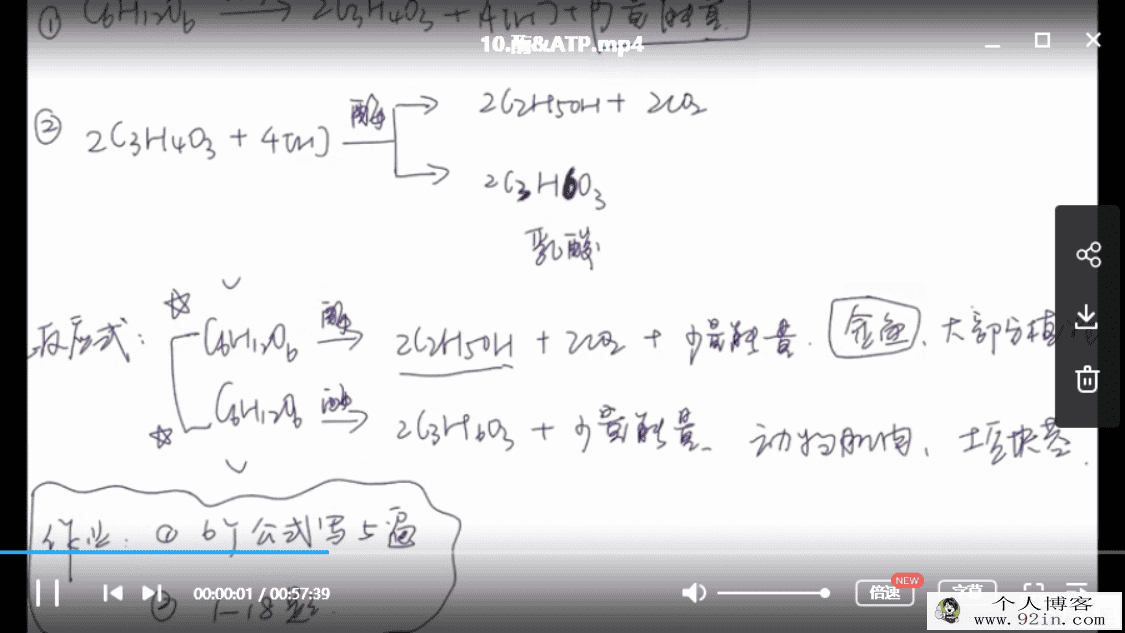 ① C6H12O6 → 2C3H4O3 + 4[H] + 少量能量
10.酶&ATP.mp4
② 2C3H4O3 + 4[H] 酶 → 2C2H5OH + 2CO2
→ 2C3H6O3
乳酸
反应式: C6H12O6 酶→ 2C2H5OH + 2CO2 + 少量能量. 金鱼、大部分植
C6H12O6 酶→ 2C3H6O3 + 少量能量、动物肌肉、土豆块茎.
作业: ① 6个公式写5遍
00:00:01 / 00:57:39
倍速
NEW
字幕
② 1-18题.
个人博客
www.92in.com